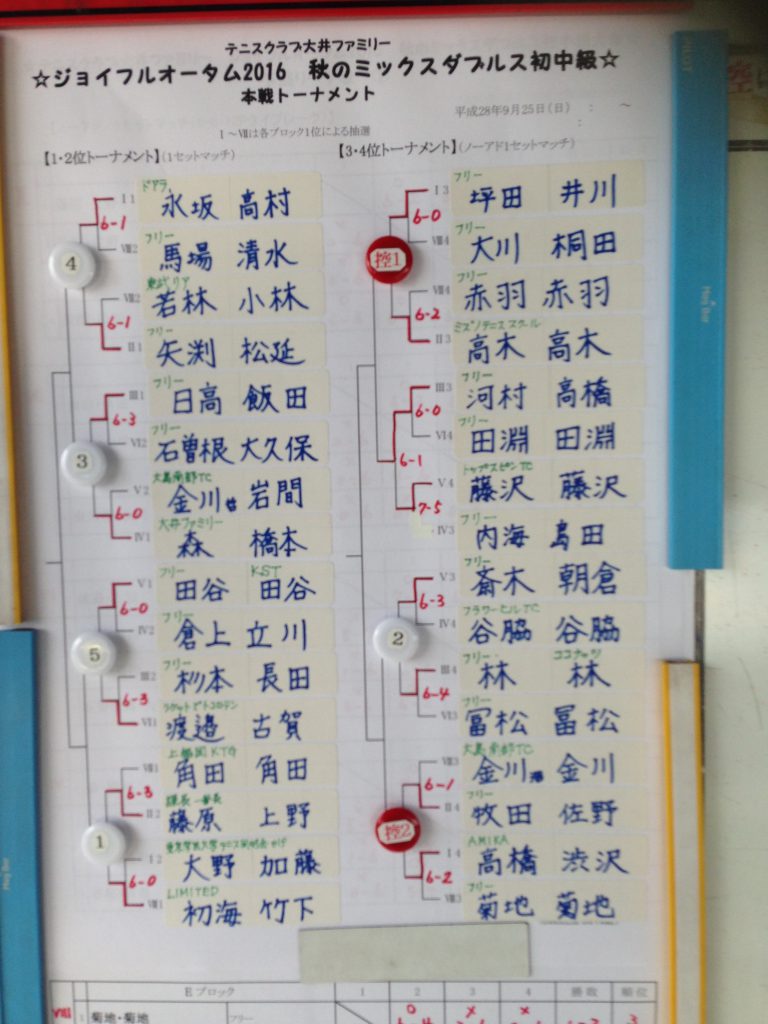 テニスクラブ大井ファミリー
☆ジョイフルオータム2016 秋のミックスダブルス初中級☆
本戦トーナメント
平成28年9月25日(日) : ～
:
I～Ⅷは各ブロック1位による抽選
【1・2位トーナメント】(1セットマッチ)
【3・4位トーナメント】(ノーアド1セットマッチ)
ドアラ
I 1 永坂 高村
6-1
フリー
Ⅷ2 馬場 清水
4
Ⅶ2 若林 小林
6-1
フリー
Ⅱ1 矢渕 松延
フリー
Ⅲ1 日高 飯田
6-3
フリー
Ⅵ2 石曽根 大久保
3
大島南部TC
V2 金川 岩間
6-0
大井ファミリー
Ⅳ1 森 橋本
フリー KST
V1 田谷 田谷
6-0
フリー
Ⅳ2 倉上 立川
5
フリー
Ⅲ2 杉本 長田
6-3
Ⅵ1 渡邉 古賀
KTG
Ⅶ1 角田 角田
6-3
Ⅱ2 藤原 上野
1
I 2 大野 加藤
6-0
LIMITED
Ⅷ1 初海 竹下
フリー
I 3 坪田 井川
6-0
フリー
Ⅷ4 大川 桐田
控1
フリー
Ⅶ4 赤羽 赤羽
6-2
ミズノテニススクール
Ⅱ3 高木 高木
フリー
Ⅲ3 河村 高橋
6-0
フリー
Ⅵ4 田淵 田淵
6-1
トップスピンTC
V4 藤沢 藤沢
7-5
フリー
Ⅳ3 内海 島田
フリー
V3 斎木 朝倉
6-3
フラワーヒルTC
Ⅳ4 谷脇 谷脇
2
フリー ココナッツ
Ⅲ4 林 林
6-4
フリー
Ⅵ3 冨松 冨松
大島南部TC
Ⅶ3 金川 金川
6-1
フリー
Ⅱ4 牧田 佐野
控2
AMIKA
I 4 高橋 渋沢
6-2
フリー
Ⅷ3 菊地 菊地
Eブロック 1 2 3 4 勝敗 順位
Ⅷ 1 菊地・菊地 フリー ○ × × 3